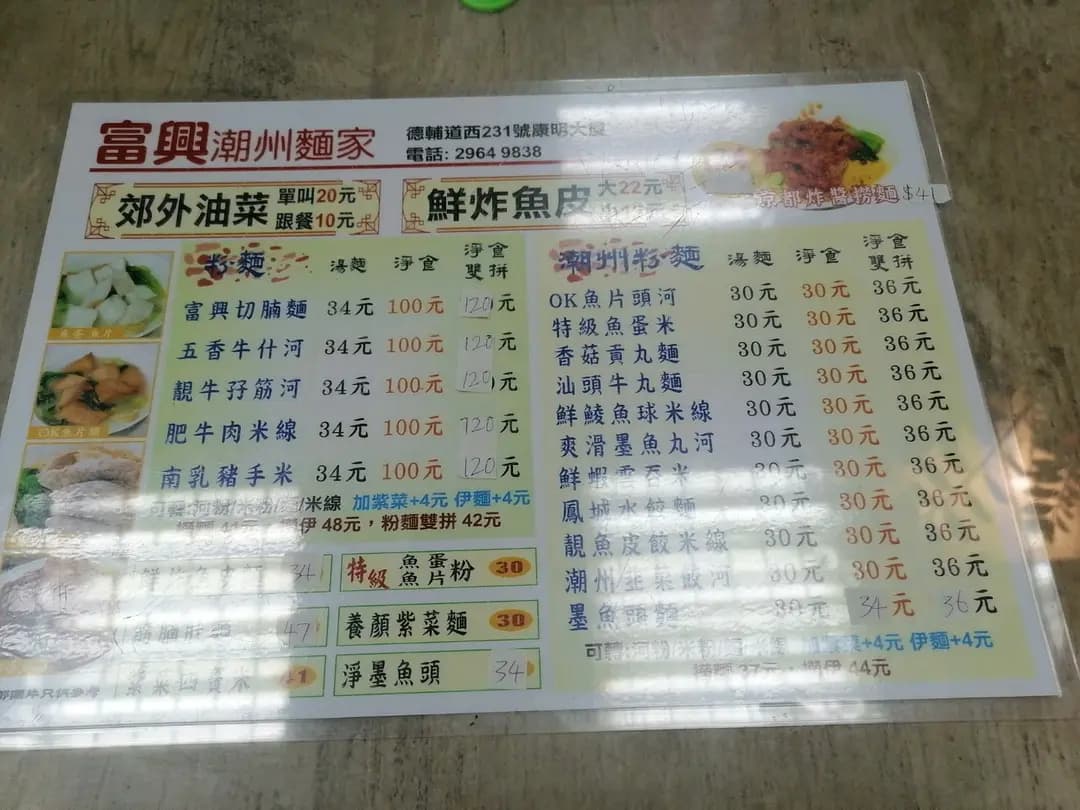 富興潮州麵家
德輔道西231號康明大廈
電話: 2964 9838
京都炸醬撈麵 $41
郊外油菜 單叫20元
跟餐10元
鮮炸魚皮 大22元
粉麵 湯麵 淨食 淨食雙拼
富興切腩麵 34元 100元 120元
五香牛什河 34元 100元 120元
靚牛孖筋河 34元 100元 120元
肥牛肉米線 34元 100元 120元
南乳豬手米 34元 100元 120元
可轉:河粉/米粉/麵/米線 加紫菜+4元 伊麵+4元
48元，粉麵雙拼 42元
潮州粉麵 湯麵 淨食 淨食雙拼
OK魚片頭河 30元 30元 36元
特級魚蛋米 30元 30元 36元
香菇貢丸麵 30元 30元 36元
汕頭牛丸麵 30元 30元 36元
鮮鯪魚球米線 30元 30元 36元
爽滑墨魚丸河 30元 30元 36元
鮮蝦雲吞米 30元 30元 36元
鳳城水餃麵 30元 30元 36元
靚魚皮餃米線 30元 30元 36元
潮州韭菜餃河 30元 30元 36元
墨魚頭麵 30元 34元 36元
可轉:河粉/米粉/麵/米線 加紫菜+4元 伊麵+4元
撈麵 37元 撈伊 44元
34
特級 魚蛋 魚片 粉 30
47
養顏紫菜麵 30
41
淨墨魚頭 34